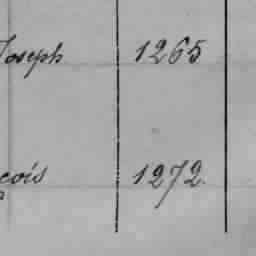 Joseph 1265
cois 1272